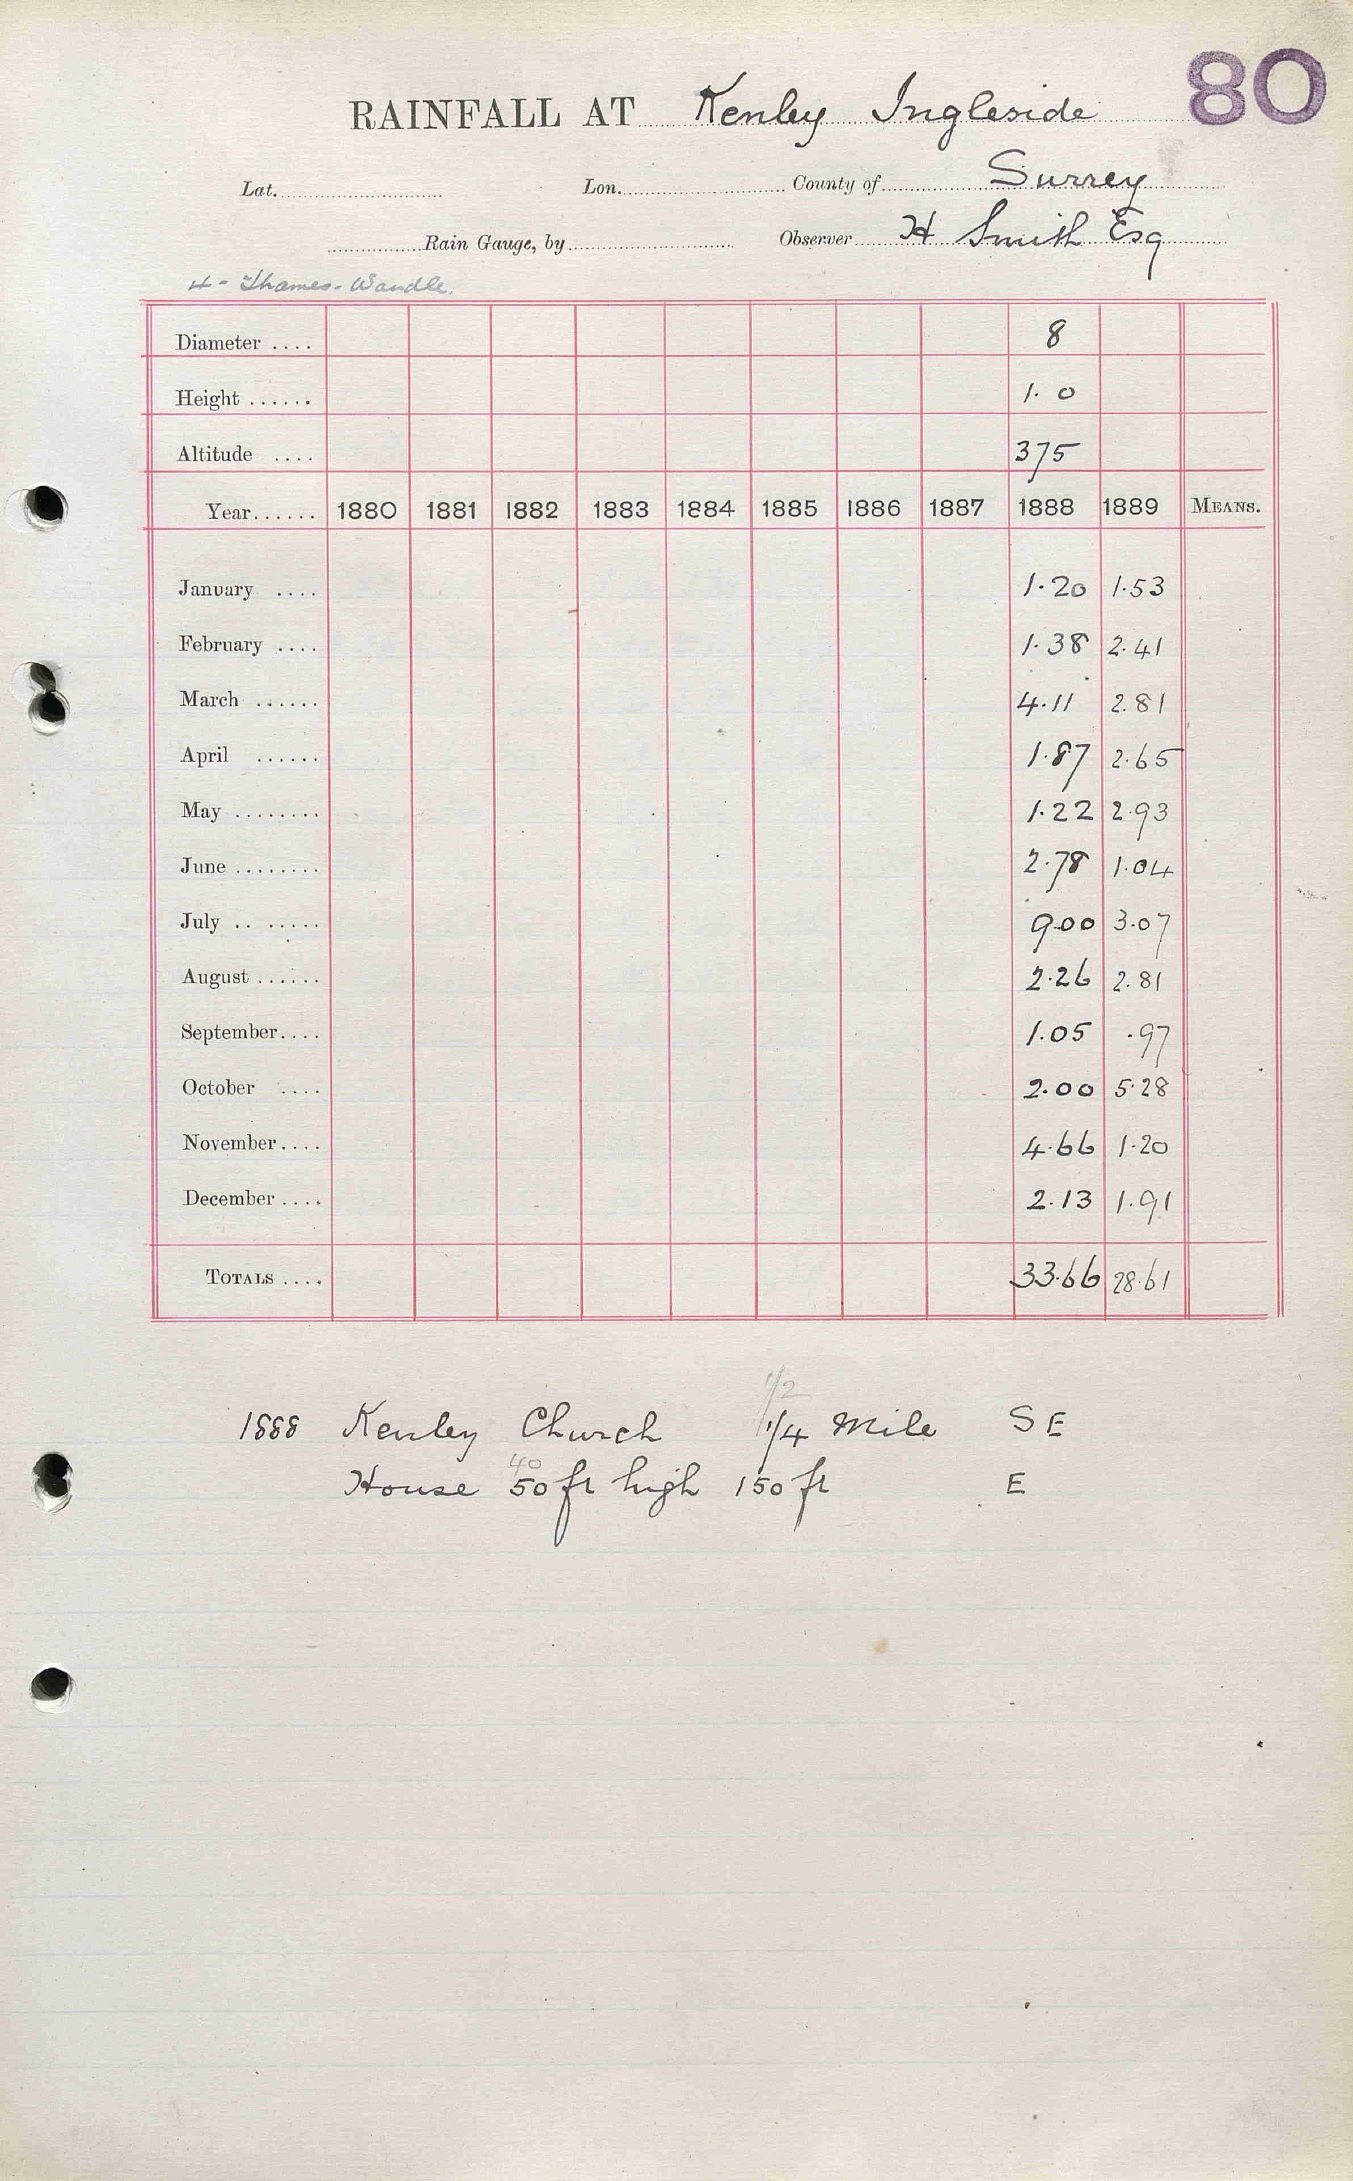 80
RAINFALL AT Kenley Ingleside
Lat. Lon. County of Surrey
Rain Gauge, by Observer H Smith Esq
4 - Thames - Wandle.
Diameter .... 8
Height ...... 1. 0
Altitude .... 375
Year...... 1880 1881 1882 1883 1884 1885 1886 1887 1888 1889 MEANS.
January .... 1.20 1.53
February .... 1.38 2.41
March ...... 4.11 2.81
April ...... 1.87 2.65
May ........ 1.22 2.93
June ........ 2.78 1.04
July .. ..... 9.00 3.07
August ...... 2.26 2.81
September.... 1.05 .97
October .... 2.00 5.28
November.... 4.66 1.20
December .... 2.13 1.91
TOTALS .... 33.66 28.61
1/2
1888 Kenley Church 1/4 Mile S E
40
House 50 ft high 150 ft E